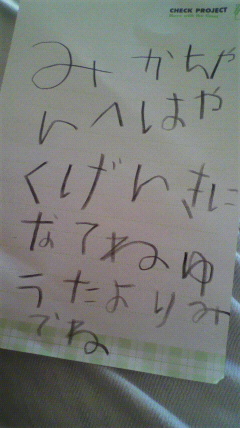 CHECK PROJECT
みかちや
んへはや
くげんきに
なてねゆ
うたよりみ
でね